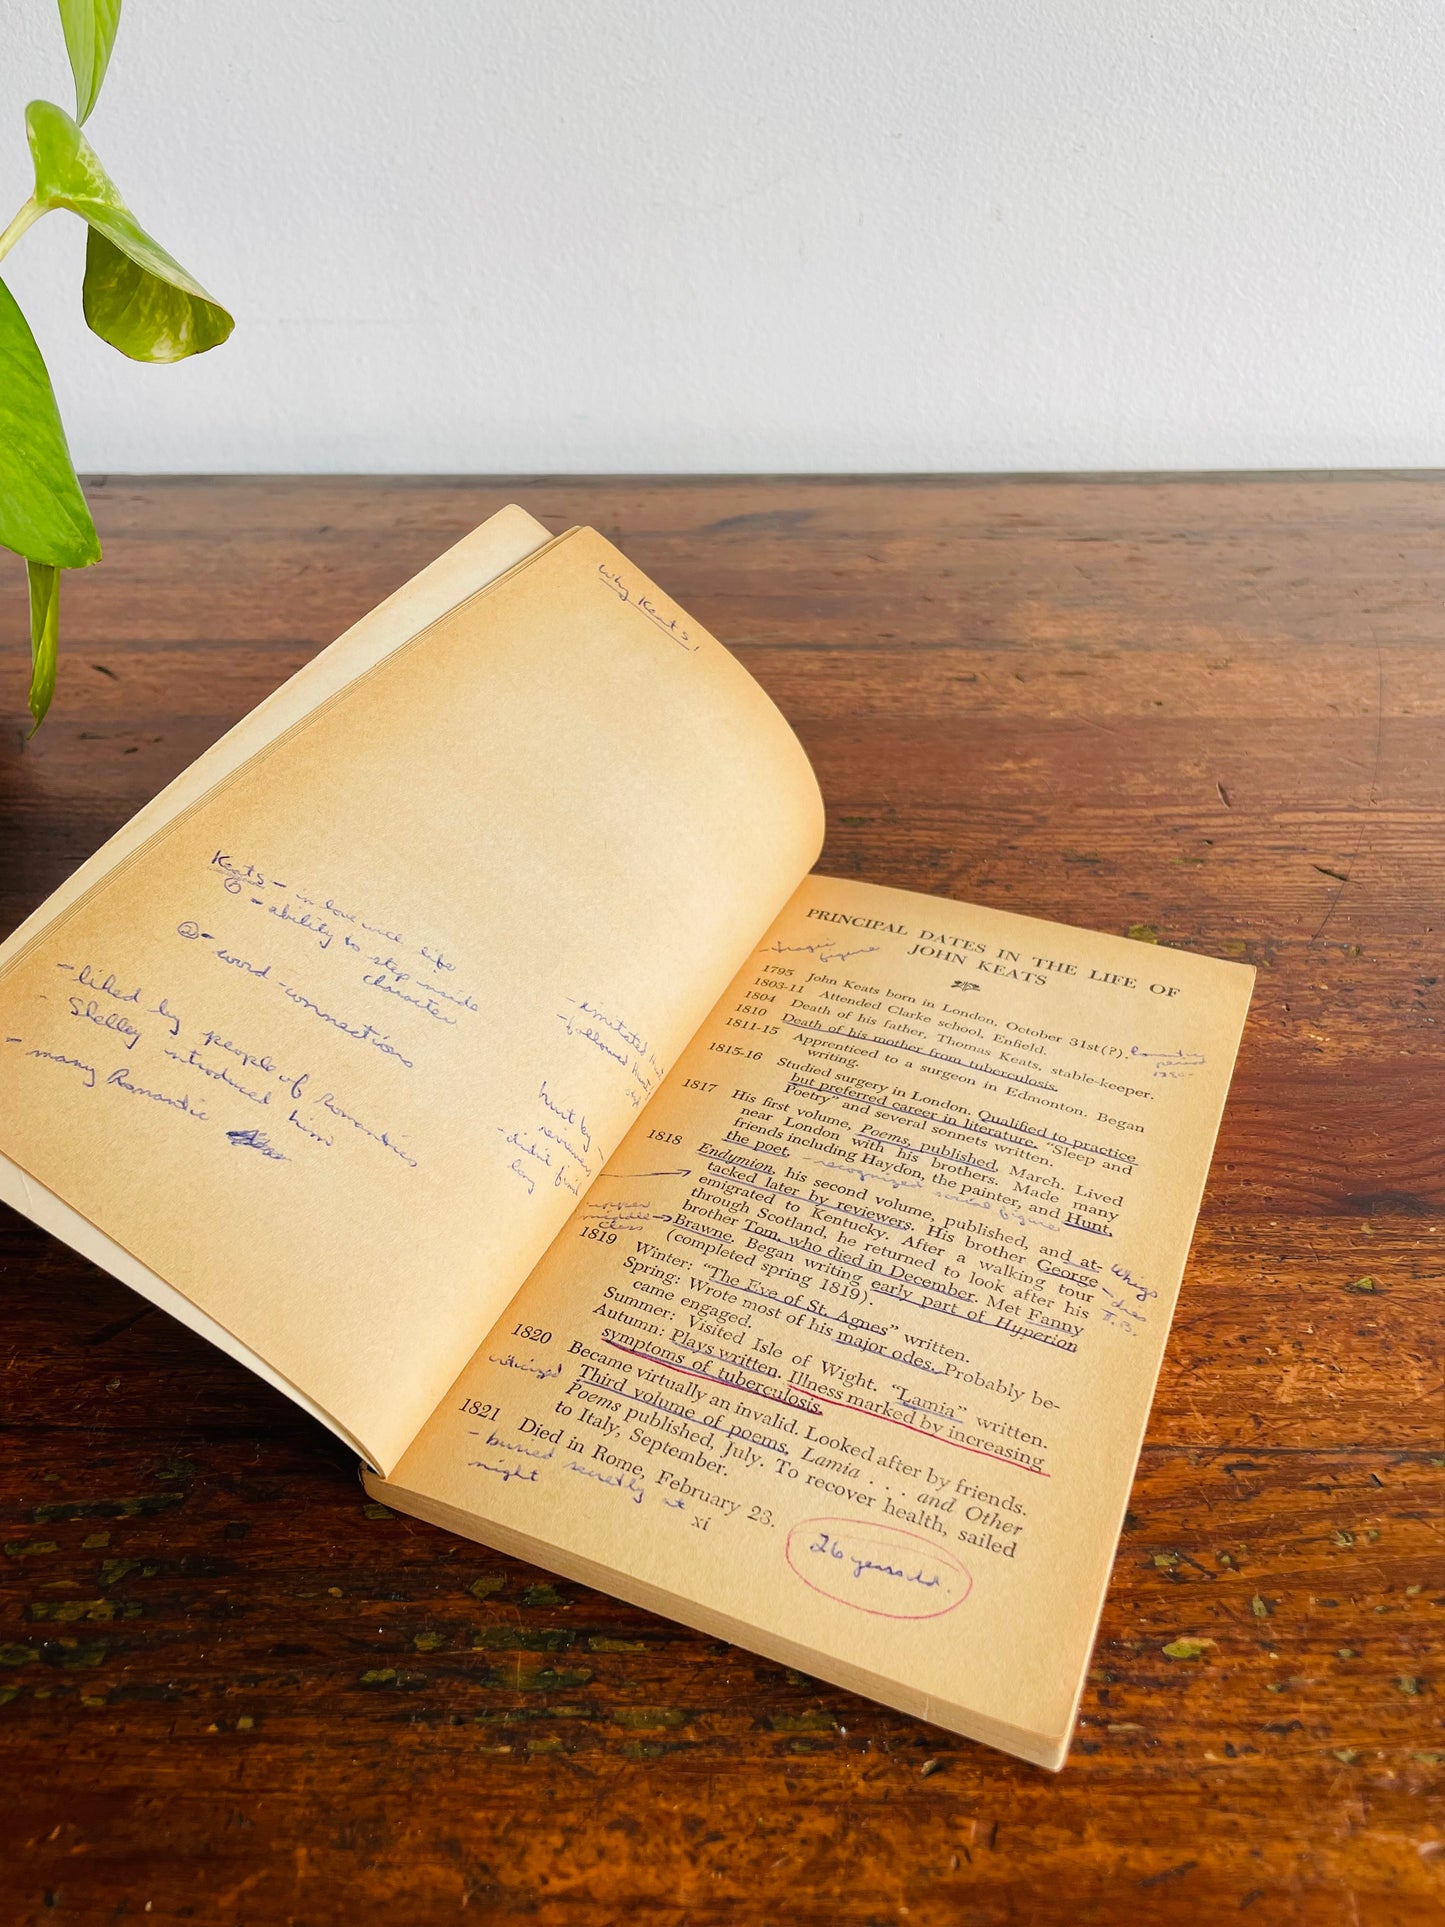 Why Keats!
Keats - in love with life
① - ability to step inside
character
② - word - connections
- liked by people of Romantics
- Shelley introduced him
- many Romantic
- imitated
- followed
hurt by
reviewers
- didn't finish
long
PRINCIPAL DATES IN THE LIFE OF
JOHN KEATS
- tragic
figure
1795 John Keats born in London, October 31st(?).
period
1803-11 Attended Clarke school, Enfield.
1804 Death of his father, Thomas Keats, stable-keeper.
1810 Death of his mother from tuberculosis.
1811-15 Apprenticed to a surgeon in Edmonton. Began
writing.
1815-16 Studied surgery in London. Qualified to practice
but preferred career in literature. "Sleep and
Poetry" and several sonnets written.
1817 His first volume, Poems, published, March. Lived
near London with his brothers. Made many
friends including Haydon, the painter, and Hunt,
the poet. - recognized social figure
1818 Endymion, his second volume, published, and at-
tacked later by reviewers. His brother George
emigrated to Kentucky. After a walking tour
through Scotland, he returned to look after his
brother Tom, who died in December. Met Fanny
Brawne. Began writing early part of Hyperion
(completed spring 1819).
Whigs
- dies
T.B.
- upper
middle
class
1819 Winter: "The Eve of St. Agnes" written.
Spring: Wrote most of his major odes. Probably be-
came engaged.
Summer: Visited Isle of Wight. "Lamia" written.
Autumn: Plays written. Illness marked by increasing
symptoms of tuberculosis.
1820 Became virtually an invalid. Looked after by friends.
criticized
Third volume of poems, Lamia . . . and Other
Poems published, July. To recover health, sailed
to Italy, September.
1821 Died in Rome, February 23.
- buried secretly at
night
xi
26 years old.